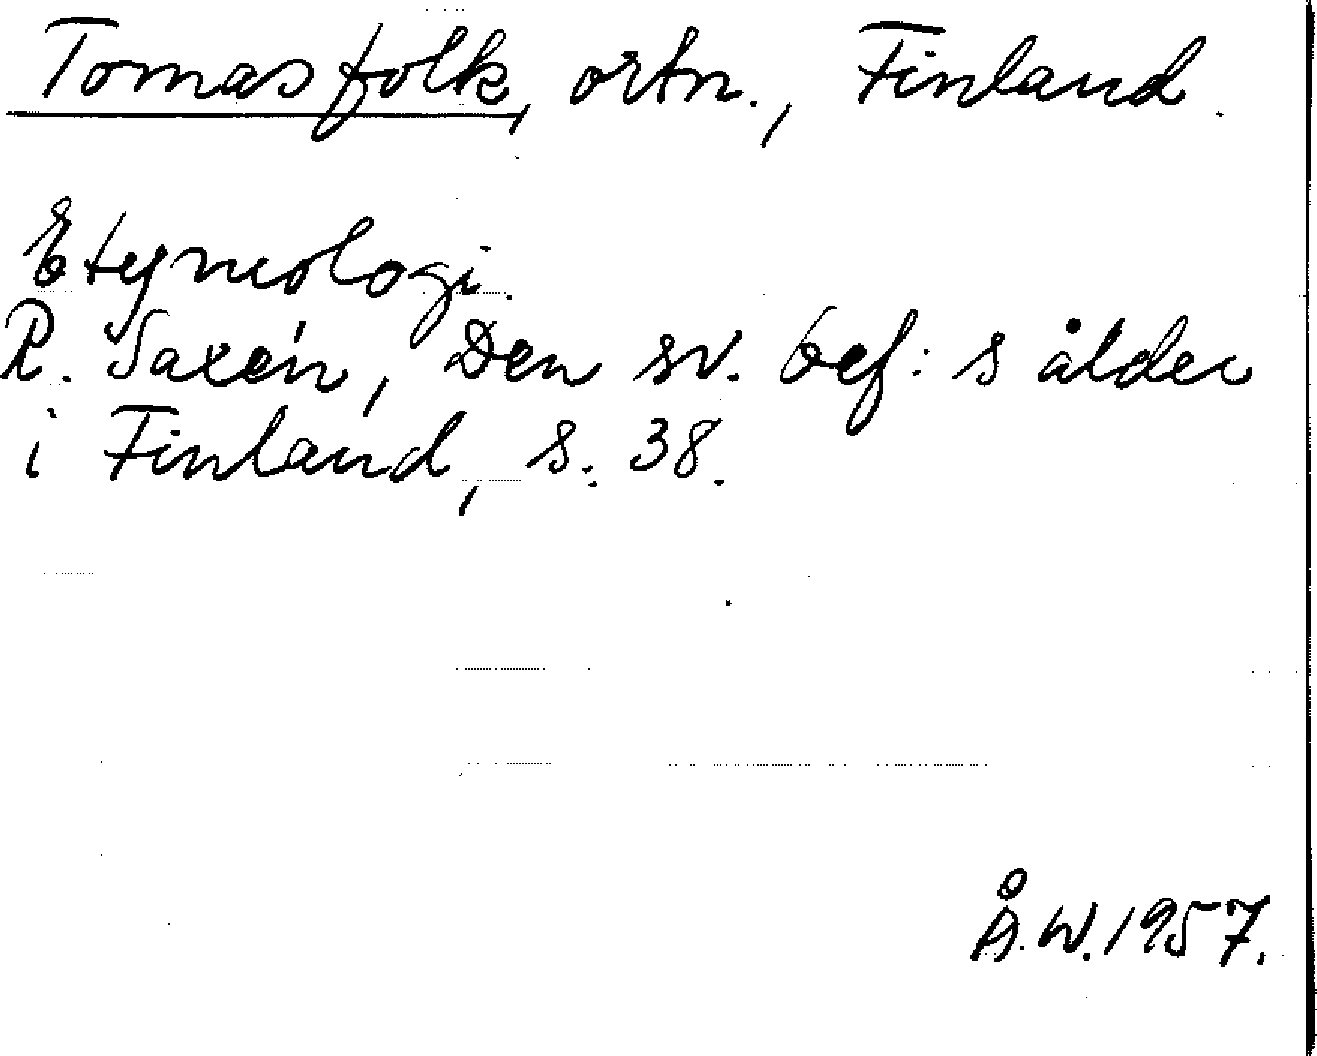 Tomasfolk, ortn., Finland.
Etymologi.
R. Saxén, Den sv. bef:s ålder
i Finland, s. 38.
Å.W.1957.